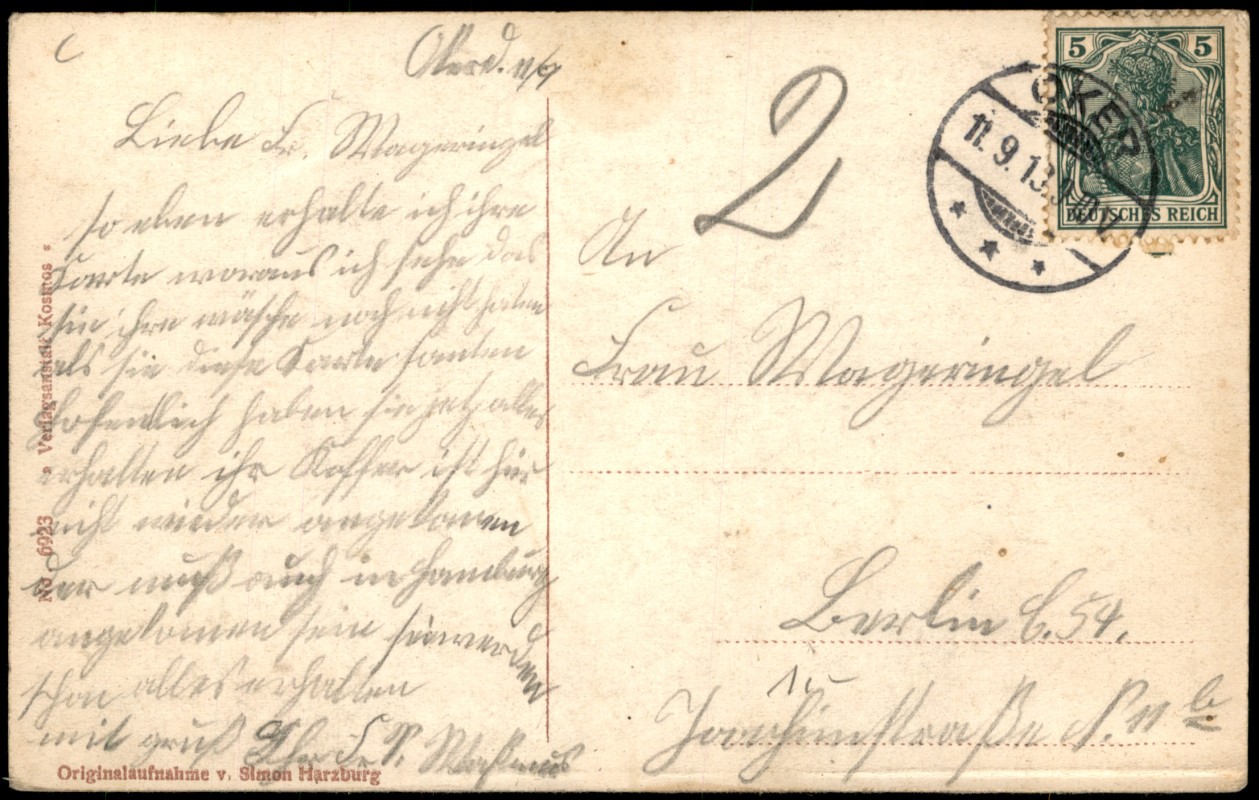 Oker d. 11/9
Liebe Fr. Wageringel
so eben erhalte ich ihre
Karte woraus ich sehe das
sie ihre wäsche noch nicht haten
als sie diese Karte santen
hofendlich haben sie jetz alles
erhalten ihr Koffer ist hir
nicht wieder angekomen
der muß auch in Hamburg
angekomen sein sie werden
schon alles erhalten
mit gruß Ihr Fr.
Originalaufnahme v. Simon Harzburg
No. 6923 Verlagsanstalt Kosmos
2
5 5
DEUTSCHES REICH
OKER
11.9.13.
An
Frau Wageringel
Berlin C. 54.
Joachimstraße N. 11 b